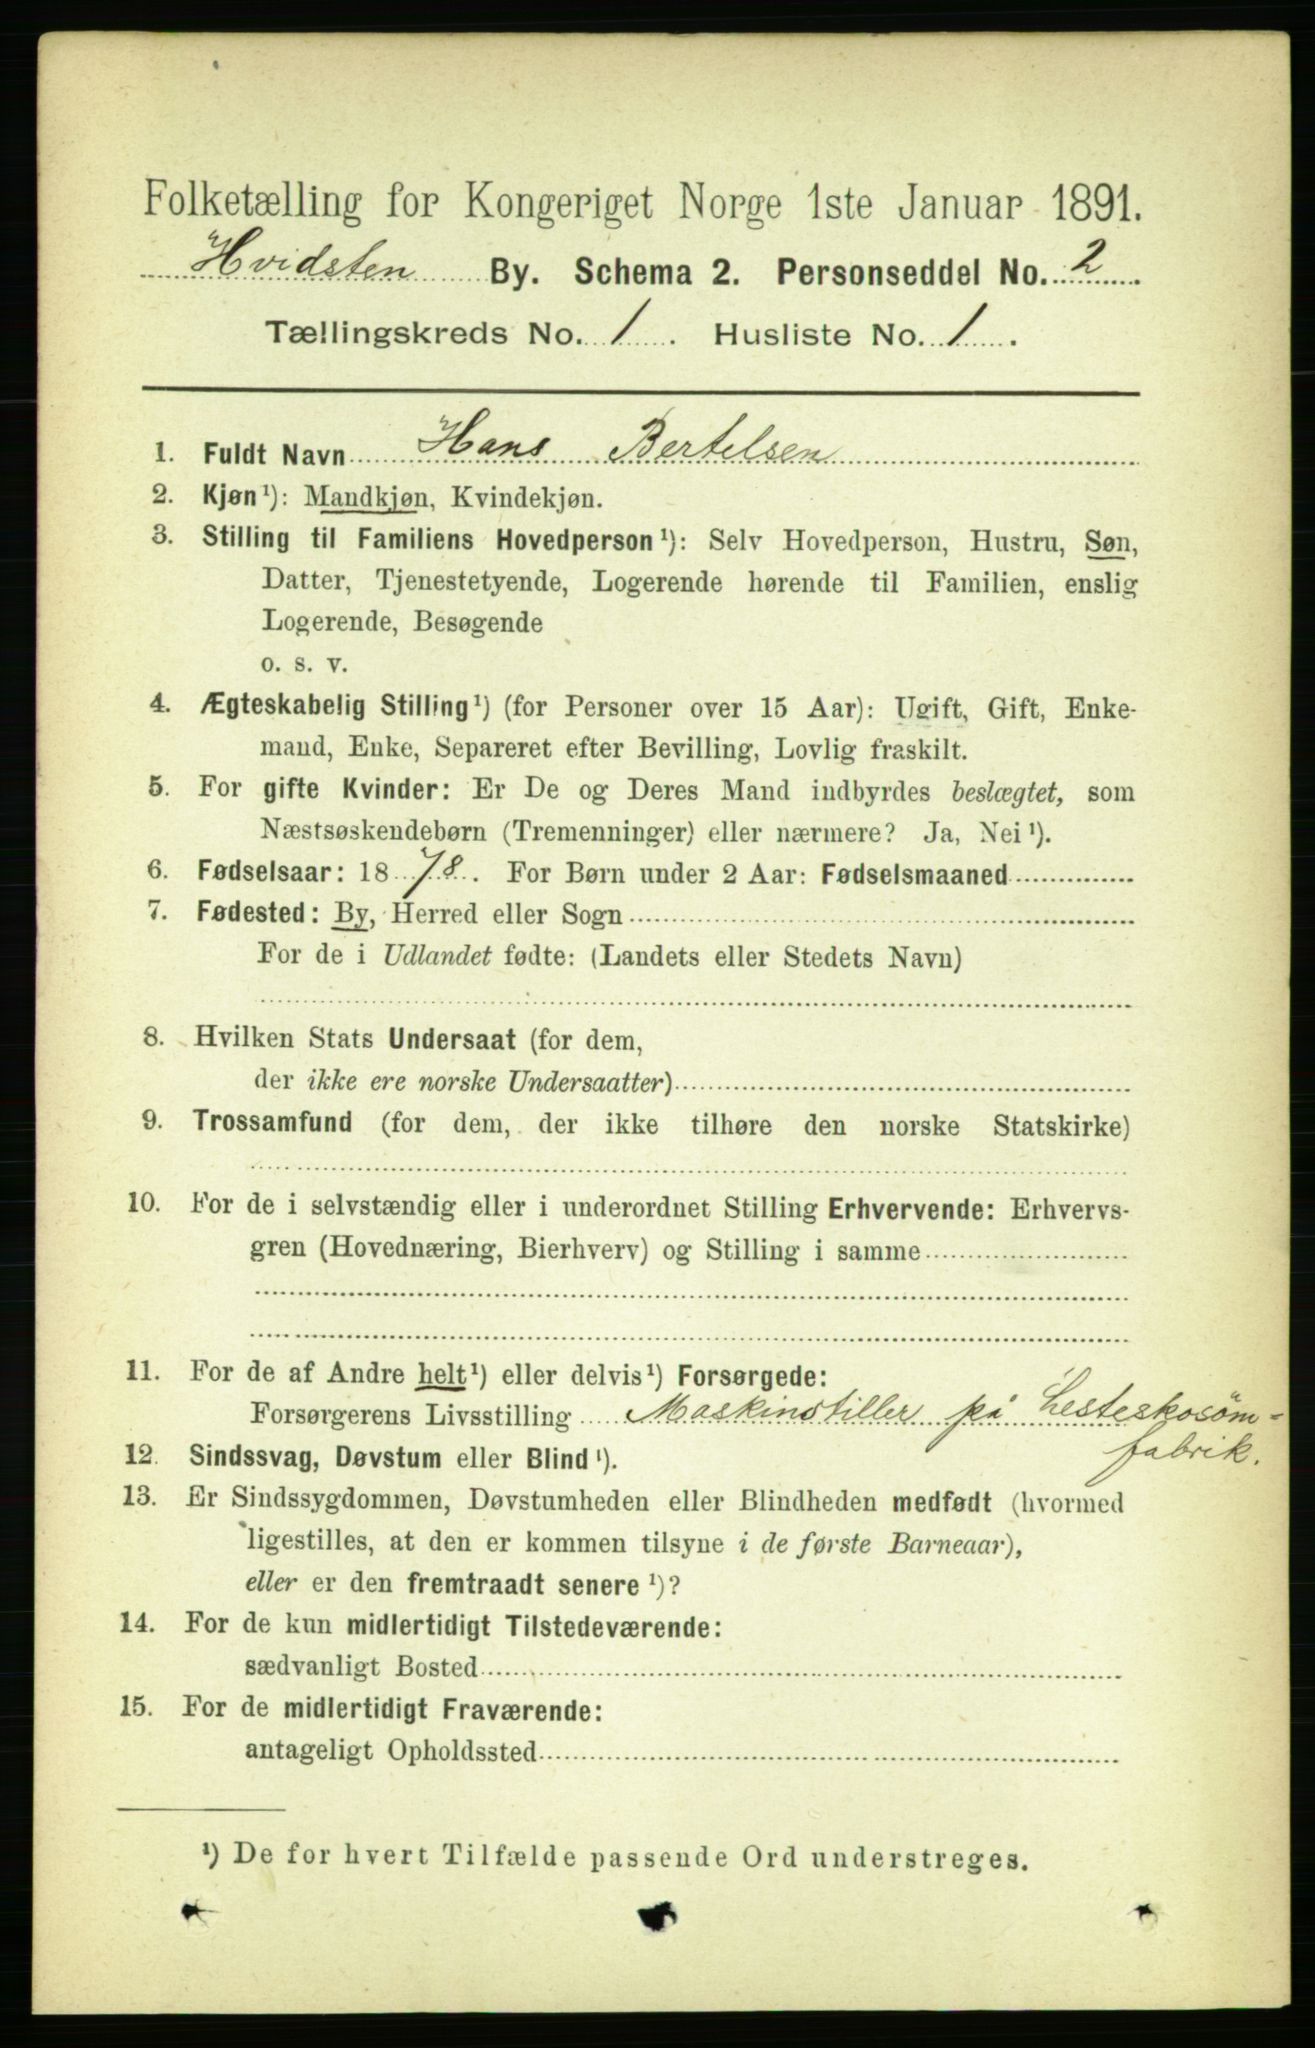 Folketælling for Kongeriget Norge 1ste Januar 1891.
Hvidsten By. Schema 2. Personseddel No. 2
Tællingskreds No. 1. Husliste No. 1.
1. Fuldt Navn Hans Bertelsen
2. Kjøn¹): Mandkjøn, Kvindekjøn.
3. Stilling til Familiens Hovedperson¹): Selv Hovedperson, Hustru, Søn,
Datter, Tjenestetyende, Logerende hørende til Familien, enslig
Logerende, Besøgende
o. s. v.
4. Ægteskabelig Stilling¹) (for Personer over 15 Aar): Ugift, Gift, Enke-
mand, Enke, Separeret efter Bevilling, Lovlig fraskilt.
5. For gifte Kvinder: Er De og Deres Mand indbyrdes beslægtet, som
Næstsøskendebørn (Tremenninger) eller nærmere? Ja, Nei¹).
6. Fødselsaar: 1878. For Børn under 2 Aar: Fødselsmaaned
7. Fødested: By, Herred eller Sogn
For de i Udlandet fødte: (Landets eller Stedets Navn)
8. Hvilken Stats Undersaat (for dem,
der ikke ere norske Undersaatter)
9. Trossamfund (for dem, der ikke tilhøre den norske Statskirke)
10. For de i selvstændig eller i underordnet Stilling Erhvervende: Erhvervs-
gren (Hovednæring, Bierhverv) og Stilling i samme
11. For de af Andre helt¹) eller delvis¹) Forsørgede:
Forsørgerens Livsstilling Maskinstiller på Hesteskosöm-
fabrik.
12. Sindssvag, Døvstum eller Blind¹).
13. Er Sindssygdommen, Døvstumheden eller Blindheden medfødt (hvormed
ligestilles, at den er kommen tilsyne i de første Barneaar),
eller er den fremtraadt senere¹)?
14. For de kun midlertidigt Tilstedeværende:
sædvanligt Bosted
15. For de midlertidigt Fraværende:
antageligt Opholdssted
¹) De for hvert Tilfælde passende Ord understreges.